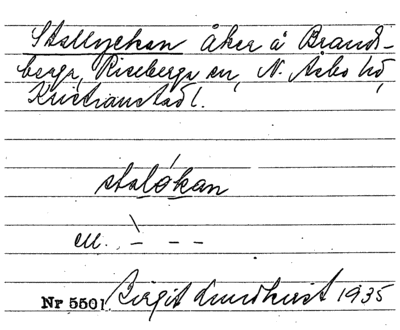 Stallyckan åker å Brands-
berga, Riseberga sn, N. Åsbo hd,
Kristianstad l.
stalókan
ell. \ - - -
Nr 5501. Birgit Lundhvist 1935